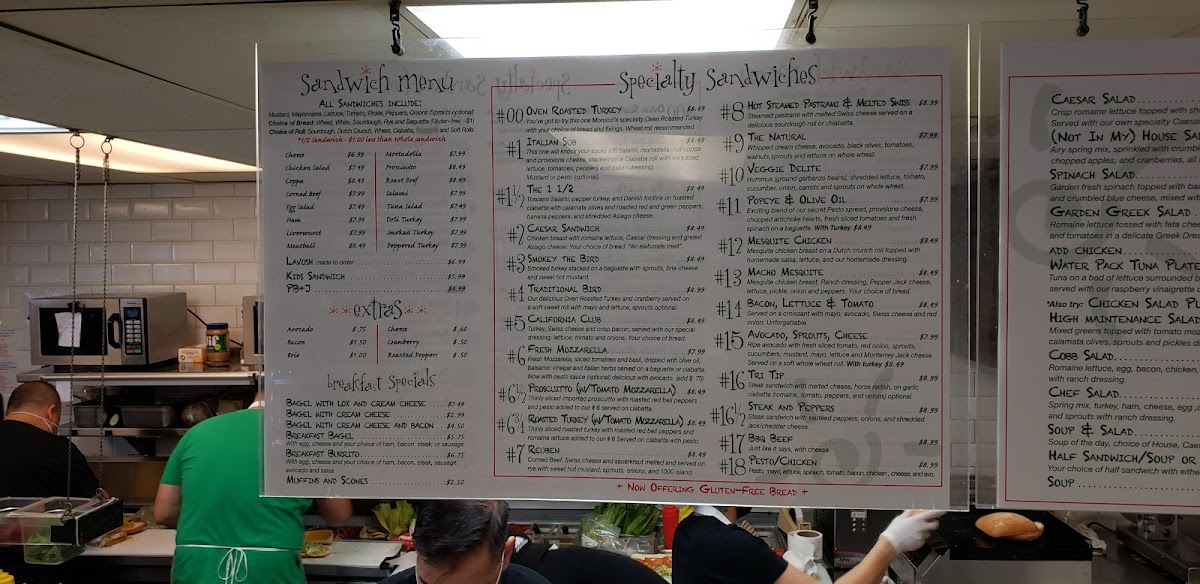 Sandwich menu
ALL SANDWICHES INCLUDE:
Mustard, Mayonnaise, Lettuce, Tomato, Pickle, Peppers, Onions (Sprouts optional)
Choice of Bread: Wheat, White, Sourdough, Rye and Baguette (Gluten-free - $1)
Choice of Roll: Sourdough, Dutch Crunch, Wheat, Ciabatta, and Soft Rolls
*1/2 Sandwich - $1.00 less than whole sandwich
Cheese $6.99
Chicken Salad $7.49
Coppa $8.49
Corned Beef $7.99
Egg Salad $7.49
Ham $7.99
Liverwurst $7.99
Meatball $8.49
Mortadella $7.99
Prosciutto $8.49
Roast Beef $8.49
Salami $7.99
Tuna Salad $7.49
Deli Turkey $7.99
Smoked Turkey $7.99
Peppered Turkey $7.99
LAVOSH made to order $6.99
KIDS SANDWICH $5.99
PB+J $4.99
extras
Avocado $.75
Bacon $1.50
Brie $1.00
Cheese $.60
Cranberry $.50
Roasted Peppers $.50
breakfast specials
BAGEL WITH LOX AND CREAM CHEESE $7.49
BAGEL WITH CREAM CHEESE $2.99
BAGEL WITH CREAM CHEESE AND BACON $4.50
BREAKFAST BAGEL $5.75
With egg, cheese and your choice of ham, bacon, steak, or sausage
BREAKFAST BURRITO $6.75
With egg, cheese and your choice of ham, bacon, steak, sausage,
avocado and salsa
MUFFINS AND SCONES $2.50
Specialty Sandwiches
#00 OVEN ROASTED TURKEY $8.49
You've got to try this one Morucci's specialty Oven Roasted Turkey
with your choice of bread and fixings. Wheat roll recommended.
#1 ITALIAN SUB $8.49
This one will knock your socks off! Salami, mortadella, hot coppa
and provolone cheese, stacked on a Ciabatta roll with shredded
lettuce, tomatoes, peppers and Italian dressing.
Mustard or pesto (optional)
#1 1/2 THE 1 1/2 $8.49
Toscano Salami, pepper turkey, and Danish fontina on toasted
ciabatta with calamata olives and roasted red and green peppers,
banana peppers, and shredded Asiago cheese.
#2 CAESAR SANDWICH $8.49
Chicken breast with romaine lettuce, Caesar dressing and grated
Asiago cheese. Your choice of bread. "An elaborate treat".
#3 SMOKEY THE BIRD $8.49
Smoked turkey stacked on a baguette with sprouts, brie cheese
and sweet hot mustard.
#4 TRADITIONAL BIRD $8.99
Our delicious Oven Roasted Turkey and cranberry served on
a soft sweet roll with mayo and lettuce, sprouts optional.
#5 CALIFORNIA CLUB $8.49
Turkey, Swiss cheese and crisp bacon, served with our special
dressing, lettuce, tomato and onions. Your choice of bread.
#6 FRESH MOZZARELLA $7.99
Fresh Mozzarella, sliced tomatoes and basil, drizzled with olive oil,
balsamic vinegar and Italian herbs served on a baguette or ciabatta.
Now with pesto sauce (optional) delicious with avocado, (add $.75)
#6 1/2 PROSCIUTTO (W/TOMATO MOZZARELLA) $8.49
Thinly sliced imported prosciutto with roasted red bell peppers
and pesto added to our #6 served on ciabatta.
#6 3/4 ROASTED TURKEY (W/TOMATO MOZZARELLA) $8.49
Thinly sliced turkey with roasted red bell peppers and
romaine lettuce added to our #6 Served on ciabatta with pesto.
#7 REUBEN $8.49
Corned Beef, Swiss cheese and sauerkraut melted and served on
rye with sweet hot mustard, sprouts, onions, and 1000 island.
#8 HOT STEAMED PASTRAMI & MELTED SWISS $8.99
Steamed pastrami with melted Swiss cheese served on a
delicious sourdough roll or ciabatta.
#9 THE NATURAL $7.99
Whipped cream cheese, avocado, black olives, tomatoes,
walnuts, sprouts and lettuce on whole wheat.
#10 VEGGIE DELITE $7.99
Hummus (ground garbanzo beans), shredded lettuce, tomato,
cucumber, onion, carrots and sprouts on whole wheat.
#11 POPEYE & OLIVE OIL $7.99
Exciting blend of our secret Pesto spread, provolone cheese,
chopped artichoke hearts, fresh sliced tomatoes and fresh
spinach on a baguette. With Turkey $8.49
#12 MESQUITE CHICKEN $8.49
Mesquite chicken breast on a Dutch crunch roll topped with
homemade salsa, lettuce, and our homemade dressing.
#13 MACHO MESQUITE $8.49
Mesquite chicken breast, Ranch dressing, Pepper Jack cheese,
lettuce, pickle, onion and peppers. Your choice of bread.
#14 BACON, LETTUCE & TOMATO $8.49
Served on a croissant with mayo, avocado, Swiss cheese and red
onion. Unforgettable.
#15 AVOCADO, SPROUTS, CHEESE $7.99
Ripe avocado with fresh sliced tomato, red onion, sprouts,
cucumbers, mustard, mayo, lettuce and Monterrey Jack cheese
Served on a soft wheat roll. With turkey $8.49
#16 TRI TIP $8.99
Steak sandwich with melted cheese, horse radish, on garlic
ciabatta (romaine, tomato, peppers, and onions) optional
#16 1/2 STEAK AND PEPPERS $8.99
Steak sandwich with sautéed peppers, onions, and shredded
jack/chedder cheese.
#17 BBQ BEEF $8.99
Just like it says, with cheese.
#18 PESTO/CHICKEN $8.99
Pesto, mayo, lettuce, spinach, tomato, bacon, chicken, cheese, and avo.
+ NOW OFFERING GLUTEN-FREE BREAD +
CAESAR SALAD
Crisp romaine lettuce topped with
Served with our own specialty Caesar
(NOT IN MY) HOUSE
Airy spring mix, sprinkled with
chopped apples, and cranberries, all
SPINACH SALAD
Garden fresh spinach topped with
and crumbled blue cheese, mixed
GARDEN GREEK SALAD
Romaine lettuce tossed with feta
and tomatoes in a delicate Greek
ADD CHICKEN
WATER PACK TUNA PLATE
Tuna on a bed of lettuce surrounded
served with our raspberry vinaigrette
*Also try: CHICKEN SALAD
HIGH MAINTENANCE SALAD
Mixed greens topped with tomato
calamata olives, sprouts and pickles
COBB SALAD
Romaine lettuce, egg, bacon, chicken,
with ranch dressing.
CHEF SALAD
Spring mix, turkey, ham, cheese, egg
and sprouts with ranch dressing.
SOUP & SALAD
Soup of the day, choice of House,
HALF SANDWICH/SOUP OR
Your choice of half sandwich with
SOUP